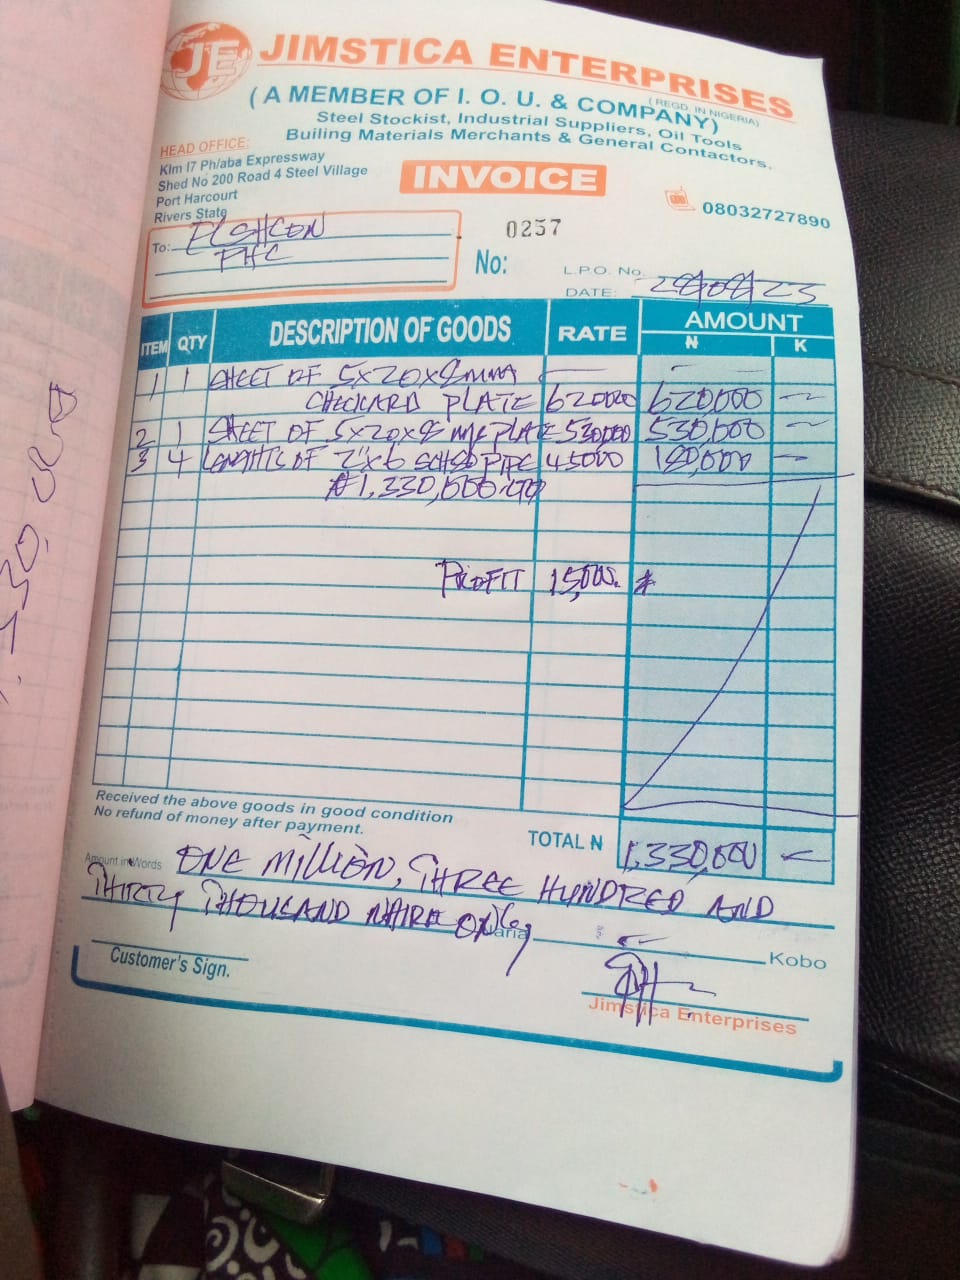 JE
JIMSTICA ENTERPRISES
(REGD. IN NIGERIA)
( A MEMBER OF I. O. U. & COMPANY)
Steel Stockist, Industrial Suppliers, Oil Tools
Builing Materials Merchants & General Contactors.
HEAD OFFICE:
Klm I7 Ph/aba Expressway
Shed No 200 Road 4 Steel Village
Port Harcourt
Rivers State
INVOICE
08032727890
To:
PHC
0257
No:
L.P.O. No.
DATE: 29/09/23
ITEM QTY DESCRIPTION OF GOODS RATE AMOUNT
₦ K
1 1 SHEET OF 5x20x8mm
PLATE 620000 620,000 —
2 1 SHEET OF 5x20x8 PLATE 530,000 530,000 —
3 4 OF 2"x6 PIPE 45000 180,000 —
₦1,330,000
PROFIT 15,000.
Received the above goods in good condition
No refund of money after payment.
TOTAL ₦ 1,330,000 —
Amount in Words ONE MILLION, THREE HUNDRED AND
THIRTY THOUSAND NAIRA ONLY
Kobo
Customer's Sign.
Jimstica Enterprises